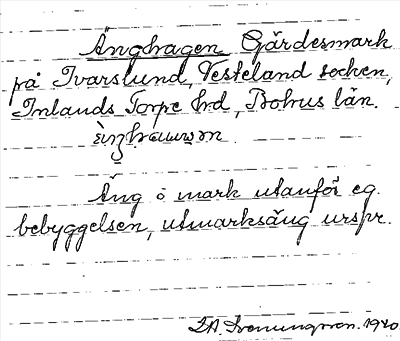 Änghagen Gärdesmark
på Ivarslund, Vesteland socken,
Inlands Torpe hd, Bohus län.
Äng i mark utanför eg.
bebyggelsen, utmarksäng urspr.
1920.